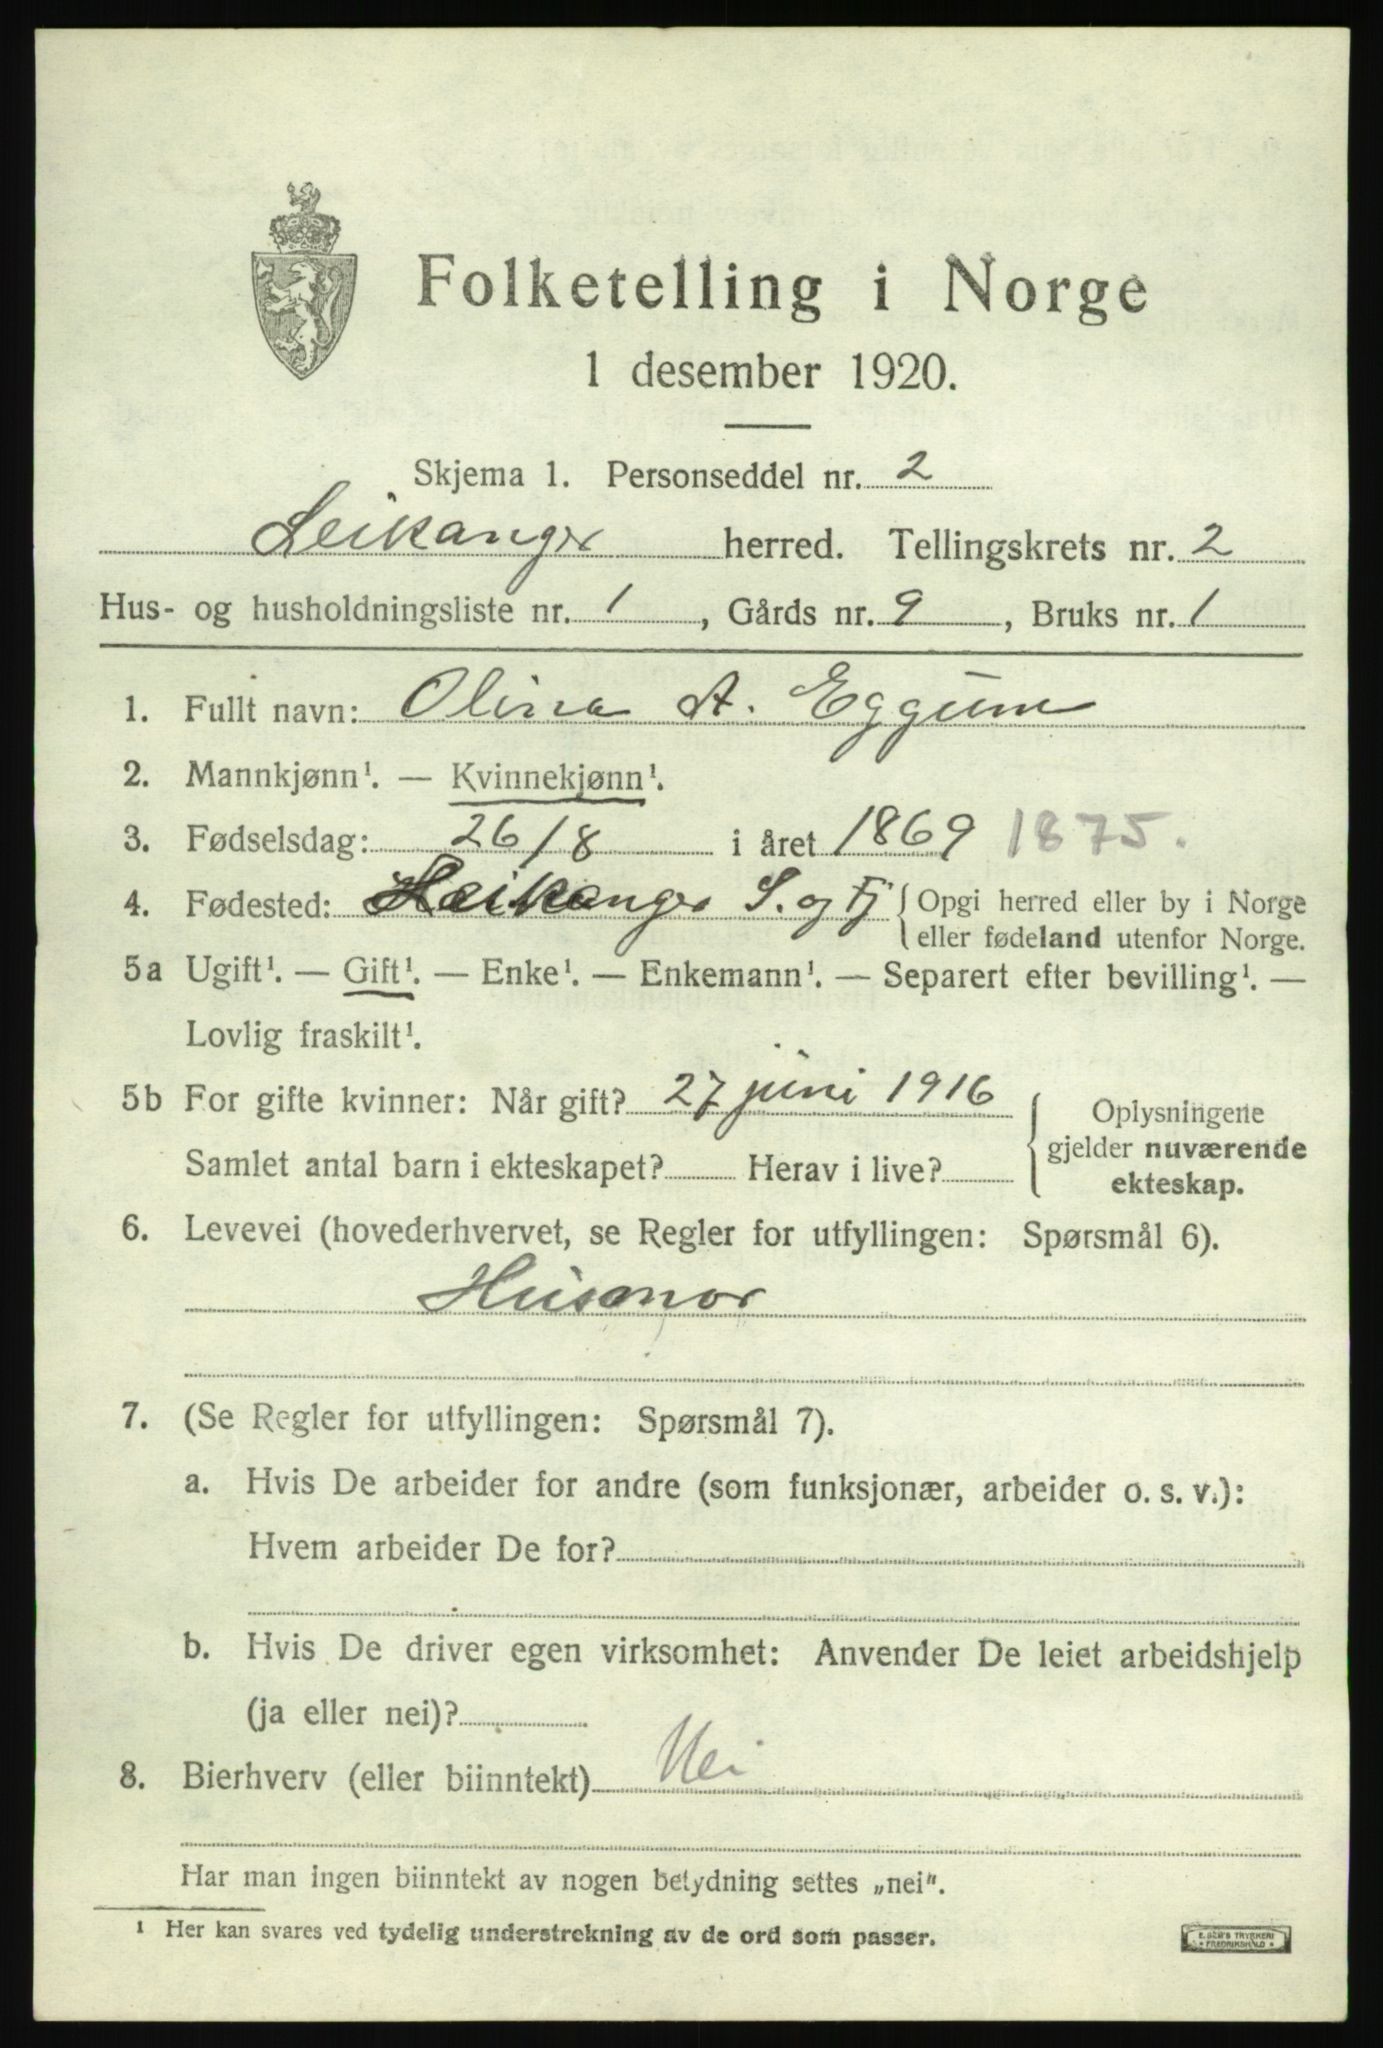 Folketelling i Norge
1 desember 1920.
Skjema 1. Personseddel nr. 2
Leikanger herred. Tellingskrets nr. 2
Hus- og husholdningsliste nr. 1, Gårds nr. 9, Bruks nr. 1
1. Fullt navn: Olina A. Eggum
2. Mannkjønn¹. — Kvinnekjønn¹.
3. Fødselsdag: 26/8 i året 1869 1875.
4. Fødested: Leikanger S. og Fj { Opgi herred eller by i Norge
eller fødeland utenfor Norge.
5a Ugift¹. — Gift¹. — Enke¹. — Enkemann¹. — Separert efter bevilling¹. —
Lovlig fraskilt¹.
5b For gifte kvinner: Når gift? 27 juni 1916
Samlet antal barn i ekteskapet? Herav i live?
{ Oplysningene
gjelder nuværende
ekteskap.
6. Levevei (hovederhvervet, se Regler for utfyllingen: Spørsmål 6).
Husmor
7. (Se Regler for utfyllingen: Spørsmål 7).
a. Hvis De arbeider for andre (som funksjonær, arbeider o. s. v.):
Hvem arbeider De for?
b. Hvis De driver egen virksomhet: Anvender De leiet arbeidshjelp
(ja eller nei)?
8. Bierhverv (eller biinntekt) Nei
Har man ingen biinntekt av nogen betydning settes „nei".
¹ Her kan svares ved tydelig understrekning av de ord som passer.
E. SEM'S TRYKKERI
• FREDRIKSHALD •